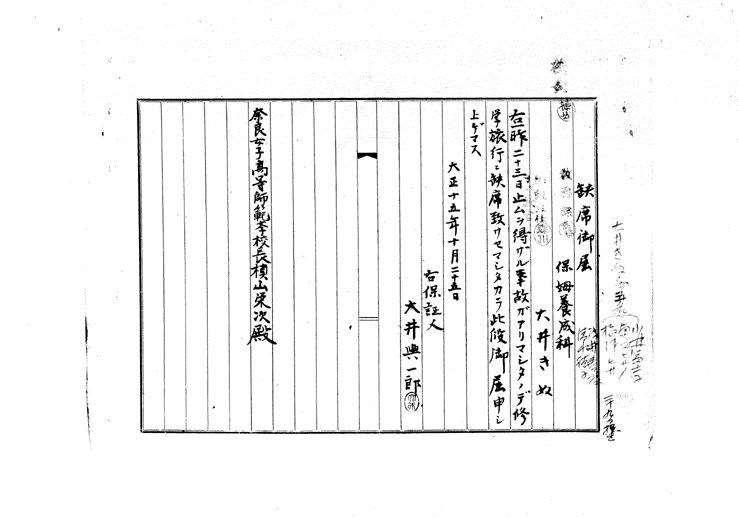 缺席御届
保姆養成科
大井きぬ
右一昨二十三日止ムヲ得ザル事故ガアリマシタノデ修
学旅行ニ缺席致サセマシタカラ此段御届申シ
上ゲマス
大正十五年十月二十五日
右保証人
大井興一郎
奈良女子高等師範学校長槙山栄次殿